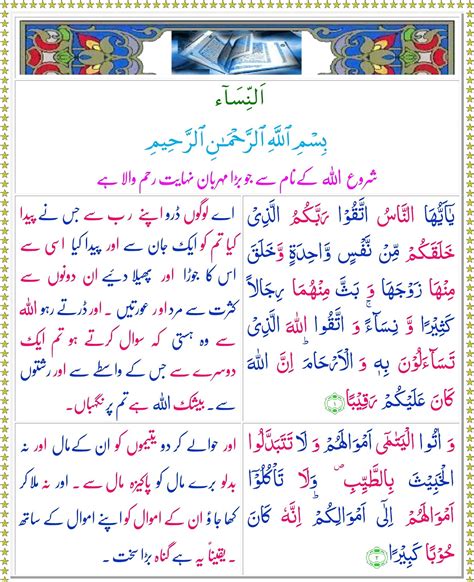 اَلنِّسَآء
بِسْمِ ٱللَّهِ ٱلرَّحْمَـٰنِ ٱلرَّحِيمِ
شروع اللہ کے نام سے جو بڑا مہربان نہایت رحم والا ہے
يٰۤاَيُّهَا النَّاسُ اتَّقُوْا رَبَّكُمُ الَّذِىْ
خَلَقَكُمْ مِّنْ نَّفْسٍ وَّاحِدَةٍ وَّخَلَقَ
مِنْهَا زَوْجَهَا وَ بَثَّ مِنْهُمَا رِجَالاً
كَثِيْرًا وَّ نِسَآءً ۚ وَ اتَّقُوا اللّٰهَ الَّذِىْ
تَسَآءَلُوْنَ بِهٖ وَ الْاَرْحَامَ ؕ اِنَّ اللّٰهَ
كَانَ عَلَيْكُمْ رَقِيْبًا ﴿۱﴾
اے لوگوں ڈرو اپنے رب سے جس نے پیدا
کیا تم کو ایک جان سے اور پیدا کیا اسی سے
اس کا جوڑا اور پھیلا دیے ان دونوں سے
کثرت سے مرد اور عورتیں ۔ اور ڈرتے رہو اللہ
سے وہ ہستی کہ سوال کرتے ہو تم ایک
دوسرے سے جس کے واسطے سے اور رشتوں
سے ۔ بیشک اللہ ہے تم پر نگہباں ۔
وَ اٰتُوا الْيَتٰمٰٓى اَمْوَالَهُمْ وَ لَا تَتَبَدَّلُوا
الْخَبِيْثَ بِالطَّيِّبِ ۪ وَلَا تَاْكُلُوْۤا
اَمْوَالَهُمْ اِلٰٓى اَمْوَالِكُمْ ؕ اِنَّهٗ كَانَ
حُوْبًا كَبِيْرًا ﴿۲﴾
اور حوالے کر دو یتیموں کو ان کے مال اور نہ
بدلو برے مال کو پاکیزہ مال سے ۔ اور نہ ملا کر
کھا جاؤ ان کے اموال کو اپنے اموال کے ساتھ
۔ یقیناً یہ ہے گناہ بڑا سخت ۔